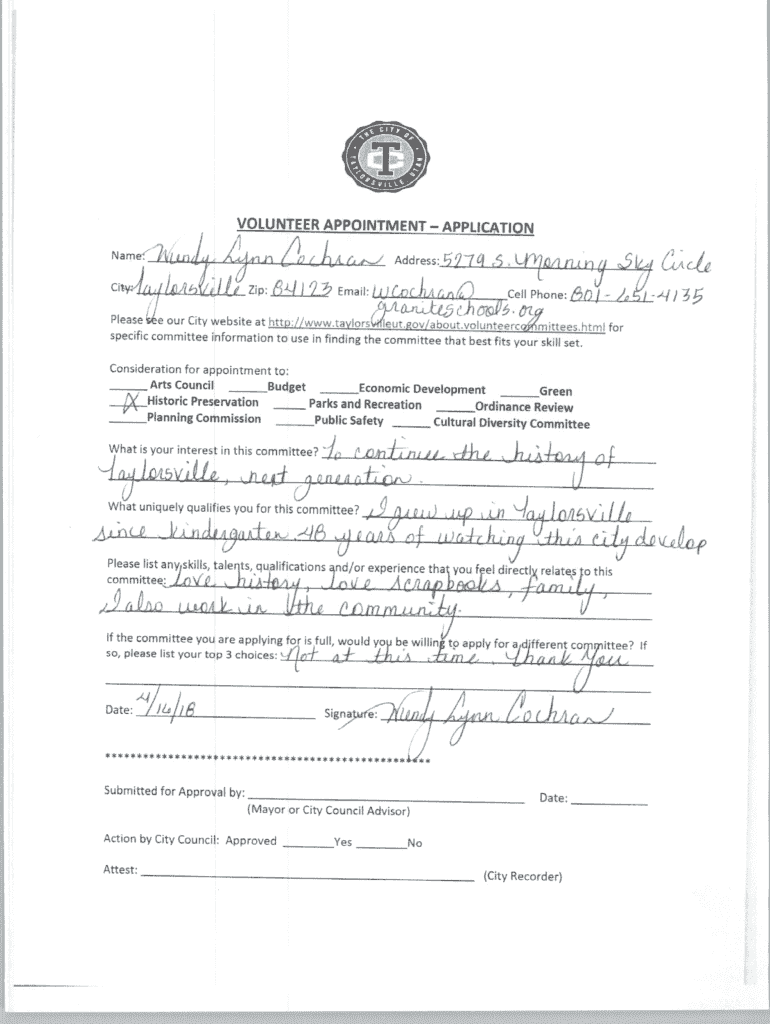 THE CITY OF
TC
TAYLORSVILLE UTAH
VOLUNTEER APPOINTMENT – APPLICATION
Name: Wendy Lynn Cochran Address: 5279 S. Morning Sky Circle
City: Taylorsville Zip: 84123 Email: wcochran@ Cell Phone: 801-651-4135
graniteschools.org
Please see our City website at http://www.taylorsvilleut.gov/about.volunteercommittees.html for
specific committee information to use in finding the committee that best fits your skill set.
Consideration for appointment to:
______ Arts Council ______Budget ______Economic Development ______Green
__X__Historic Preservation _____ Parks and Recreation ______Ordinance Review
______Planning Commission ______Public Safety ______ Cultural Diversity Committee
What is your interest in this committee? To continue the history of
Taylorsville, next generation.
What uniquely qualifies you for this committee? I grew up in Taylorsville
since kindergarten. 48 years of watching this city develop
Please list any skills, talents, qualifications and/or experience that you feel directly relates to this
committee: Love history, love scrapbooks, family,
I also work in the community.
If the committee you are applying for is full, would you be willing to apply for a different committee? If
so, please list your top 3 choices: Not at this time. Thank You
Date: 4/16/18 Signature: Wendy Lynn Cochran
**************************************************
Submitted for Approval by: ______ Date: ______
(Mayor or City Council Advisor)
Action by City Council: Approved ______Yes ______No
Attest: ______ (City Recorder)